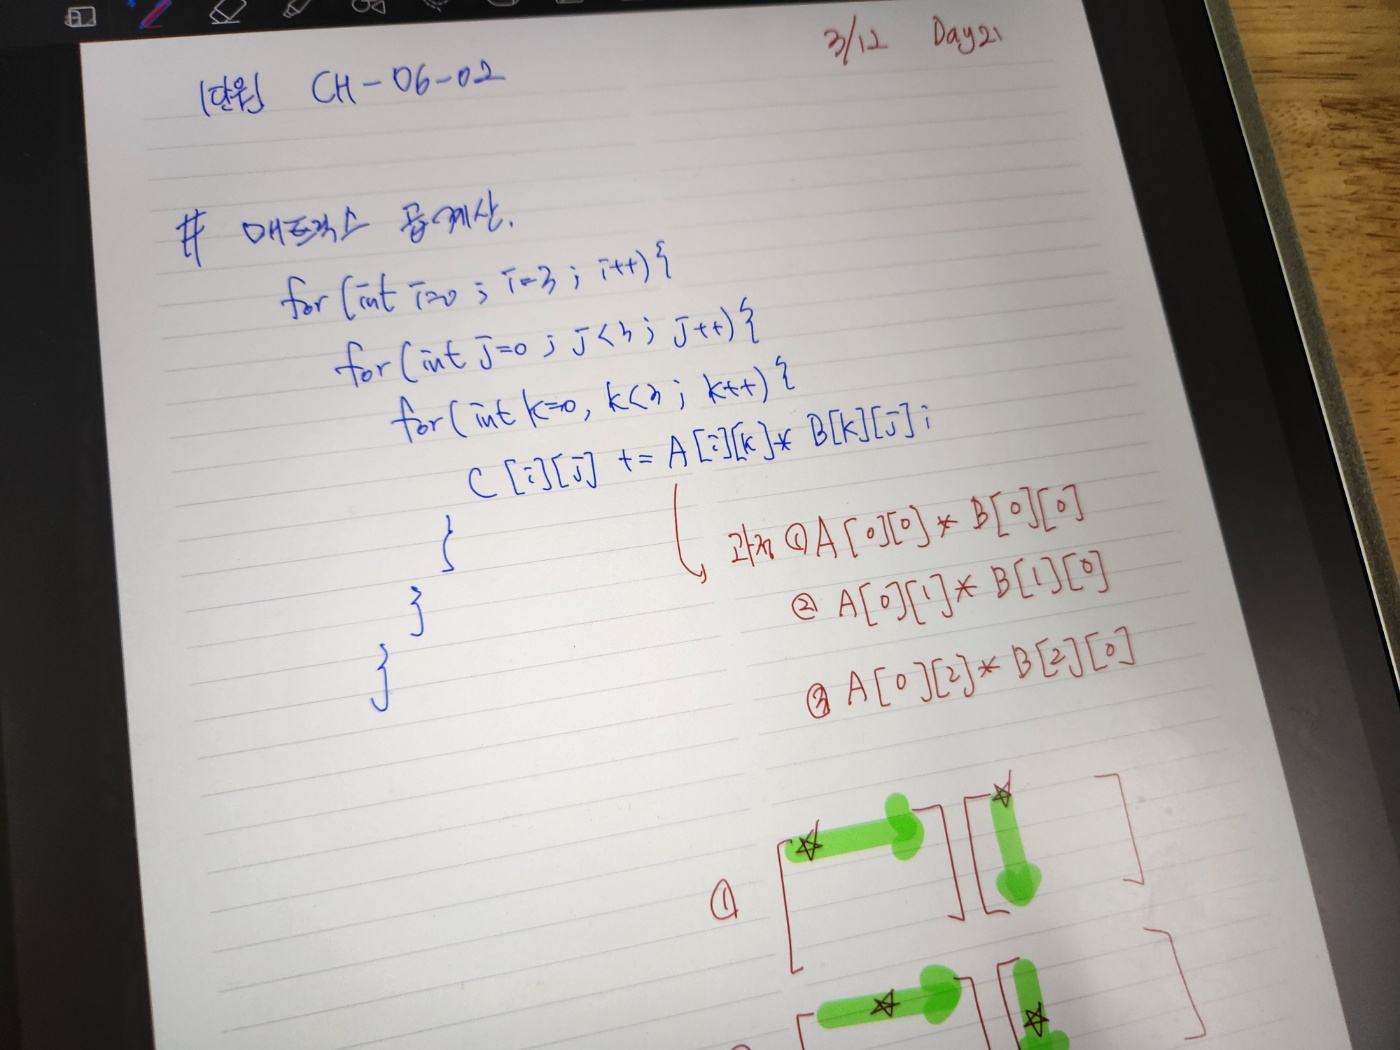 3/12 Day21
[단원] CH-06-02
# 매트릭스 곱계산.
for (int i=0 ; i=3 ; i++) {
for (int j=0 ; j<3 ; j++) {
for (int k=0, k<3 ; k++) {
C [i][j] += A [i][k] * B[k][j] ;
}
}
}
과정 ① A [0][0] * B[0][0]
② A[0][1] * B[1][0]
③ A[0][2] * B[2][0]
①